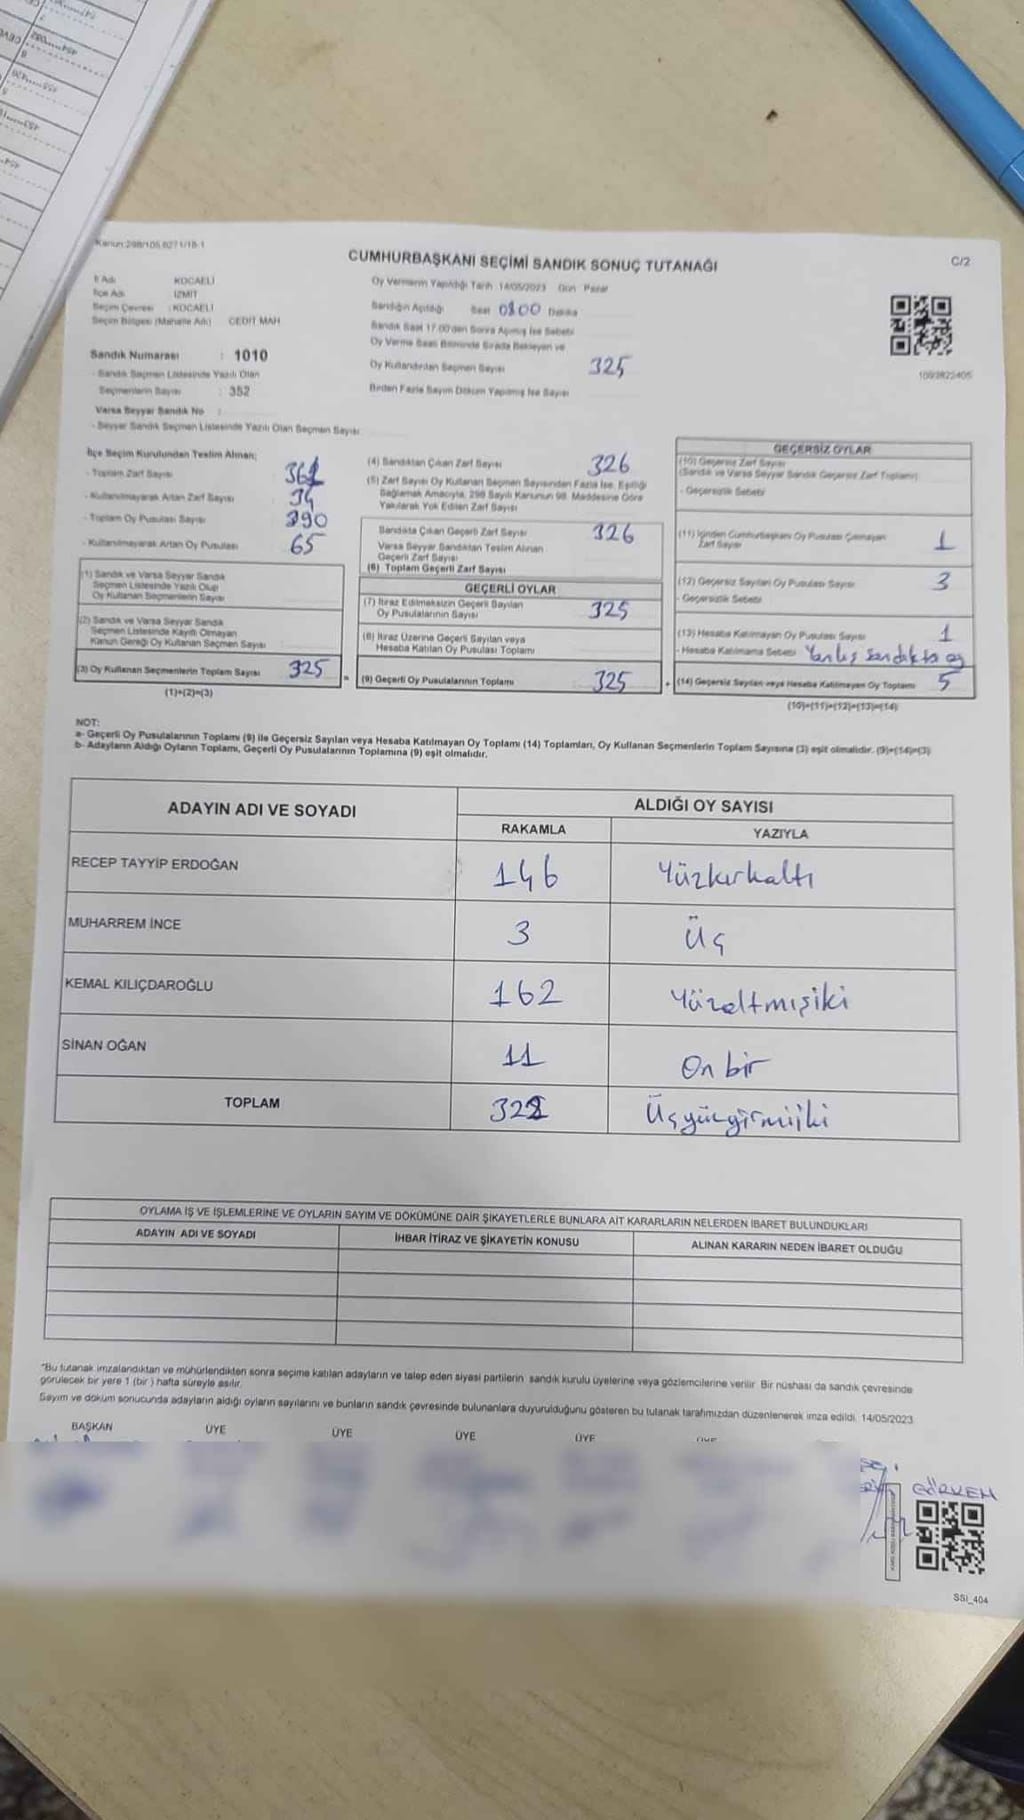 Kanun:298/105,6271/18-1
CUMHURBAŞKANI SEÇİMİ SANDIK SONUÇ TUTANAĞI
C/2
İl Adı KOCAELİ
İlçe Adı İZMİT
Seçim Çevresi : KOCAELİ
Seçim Bölgesi (Mahalle Adı) CEDİT MAH
Sandık Numarası : 1010
- Sandık Seçmen Listesinde Yazılı Olan
Seçmenlerin Sayısı : 352
Varsa Seyyar Sandık No :
- Seyyar Sandık Seçmen Listesinde Yazılı Olan Seçmen Sayısı
Oy Vermenin Yapıldığı Tarih 14/05/2023 Gün Pazar
Sandığın Açıldığı Saat 0800 Dakika
Sandık Saat 17.00'den Sonra Açılmış İse Sebebi
Oy Verme Saati Bitiminde Sırada Bekleyen ve
Oy Kullandırılan Seçmen Sayısı 325
Birden Fazla Sayım Döküm Yapılmış İse Sayısı
1093822405
İlçe Seçim Kurulundan Teslim Alınan;
- Toplam Zarf Sayısı
- Kullanılmayarak Artan Zarf Sayısı 34
- Toplam Oy Pusulası Sayısı 390
- Kullanılmayarak Artan Oy Pusulası 65
(1) Sandık ve Varsa Seyyar Sandık
Seçmen Listesinde Yazılı Olup
Oy Kullanan Seçmenlerin Sayısı
(2) Sandık ve Varsa Seyyar Sandık
Seçmen Listesinde Kayıtlı Olmayan
Kanun Gereği Oy Kullanan Seçmen Sayısı
(3) Oy Kullanan Seçmenlerin Toplam Sayısı 325
(1)+(2)=(3)
(4) Sandıktan Çıkan Zarf Sayısı 326
(5) Zarf Sayısı Oy Kullanan Seçmen Sayısından Fazla İse, Eşitliği
Sağlamak Amacıyla, 298 Sayılı Kanunun 98. Maddesine Göre
Yakılarak Yok Edilen Zarf Sayısı
Sandıkta Çıkan Geçerli Zarf Sayısı 326
Varsa Seyyar Sandıktan Teslim Alınan
Geçerli Zarf Sayısı
(6) Toplam Geçerli Zarf Sayısı
GEÇERLİ OYLAR
(7) İtiraz Edilmeksizin Geçerli Sayılan
Oy Pusulalarının Sayısı 325
(8) İtiraz Üzerine Geçerli Sayılan veya
Hesaba Katılan Oy Pusulası Toplamı
= (9) Geçerli Oy Pusulalarının Toplamı 325
GEÇERSİZ OYLAR
(10) Geçersiz Zarf Sayısı
(Sandık ve Varsa Seyyar Sandık Geçersiz Zarf Toplamı)
- Geçersizlik Sebebi
(11) İçinden Cumhurbaşkanı Oy Pusulası Çıkmayan
Zarf Sayısı 1
(12) Geçersiz Sayılan Oy Pusulası Sayısı 3
- Geçersizlik Sebebi
(13) Hesaba Katılmayan Oy Pusulası Sayısı 1
- Hesaba Katılmama Sebebi Yanlış Sandıkta oy
+ (14) Geçersiz Sayılan veya Hesaba Katılmayan Oy Toplamı 5
(10)+(11)+(12)+(13)=(14)
NOT:
a- Geçerli Oy Pusulalarının Toplamı (9) ile Geçersiz Sayılan veya Hesaba Katılmayan Oy Toplamı (14) Toplamları, Oy Kullanan Seçmenlerin Toplam Sayısına (3) eşit olmalıdır. (9)+(14)=(3)
b- Adayların Aldığı Oyların Toplamı, Geçerli Oy Pusulalarının Toplamına (9) eşit olmalıdır.
ADAYIN ADI VE SOYADI ALDIĞI OY SAYISI
RAKAMLA YAZIYLA
RECEP TAYYİP ERDOĞAN 146 Yüzkırkaltı
MUHARREM İNCE 3 Üç
KEMAL KILIÇDAROĞLU 162 Yüzaltmışiki
SİNAN OĞAN 11 On bir
TOPLAM 322 Üçyüzyirmiiki
OYLAMA İŞ VE İŞLEMLERİNE VE OYLARIN SAYIM VE DÖKÜMÜNE DAİR ŞİKAYETLERLE BUNLARA AİT KARARLARIN NELERDEN İBARET BULUNDUKLARI
ADAYIN ADI VE SOYADI İHBAR İTİRAZ VE ŞİKAYETİN KONUSU ALINAN KARARIN NEDEN İBARET OLDUĞU
"Bu tutanak imzalandıktan ve mühürlendikten sonra seçime katılan adayların ve talep eden siyasi partilerin sandık kurulu üyelerine veya gözlemcilerine verilir. Bir nüshası da sandık çevresinde
görülecek bir yere 1 (bir ) hafta süreyle asılır.
Sayım ve döküm sonucunda adayların aldığı oyların sayılarını ve bunların sandık çevresinde bulunanlara duyurulduğunu gösteren bu tutanak tarafımızdan düzenlenerek imza edildi. 14/05/2023
BAŞKAN ÜYE ÜYE ÜYE ÜYE
GÖRKEM
SSI_404